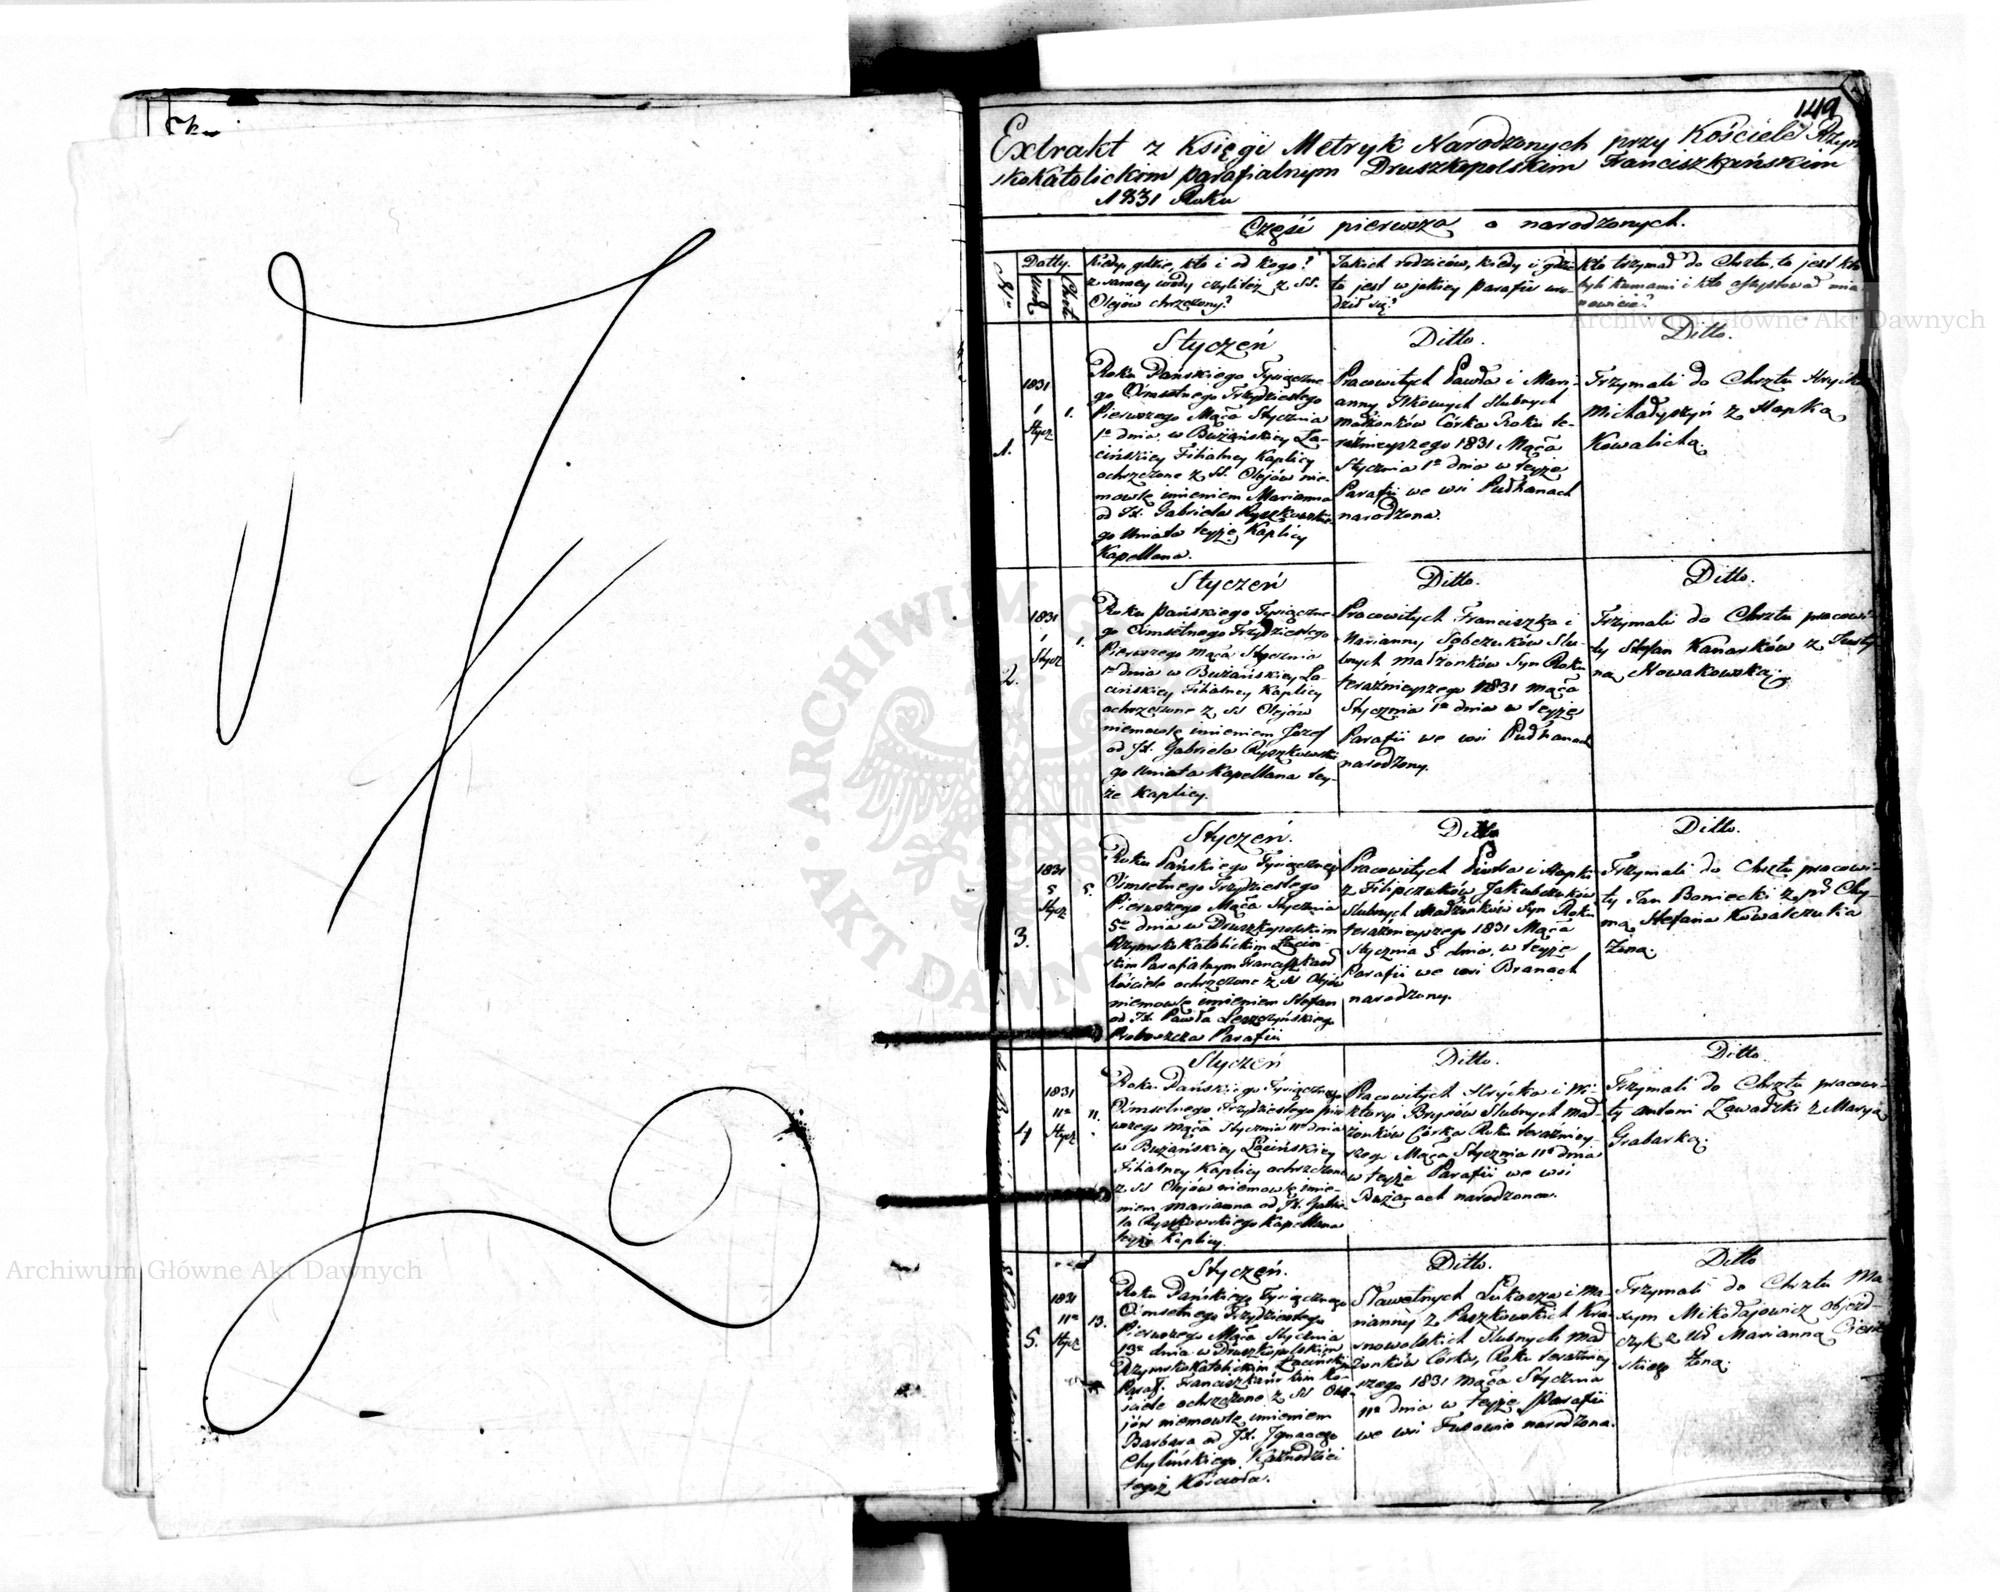 149
Extrakt z Księgi Metryk Narodzonych przy Kościele Rzym
skokatolickim parafialnym Druszkopolskim Franciszkańskim
1831 Roku
Część pierwsza o narodzonych.
Nro
Datty.
Urod.
Chrztu
Kiedy, gdzie, kto i od kogo?
z samey wody czyliteż z SS.
Olejów chrzczony?
Jakich rodziców, kiedy i gdzie
to jest w jakiey parafii uro-
dził się?
Kto trzymał do Chrztu, to jest kto
byli kumami i kto assystował mia
nowicie?
1.
1831
1
Stycz
1.
Styczeń
Roku Pańskiego Tysiączne-
go Ośmsetnego Trzydziestego
Pierwszego Mąca Stycznia
1o dnia w Bużańskiey Ła-
cińskiey Filialney Kaplicy
ochrzczone z SS. Olejów nie-
mowle imieniem Marianna
od JX. Gabriela Ryszkowskie-
go Uniata teyże Kaplicy
Kapellana.
Ditto.
Pracowitych Pawła i Mari-
anny Ślubnych
małżonków Córka Roku te-
raźnieyszego 1831 Mąca
Stycznia 1o dnia w teyże
Parafii we wsi Pudhanach
narodzona.
Ditto.
Trzymali do Chrztu Hryćko
Michadyszyń z Hapką
Kowalichą.
2.
1831
1
Stycz
1.
Styczeń
Roku Pańskiego Tysiączne-
go Ośmsetnego Trzydziestego
Pierwszego Mąca Stycznia
1o dnia w Bużańskiey Ła-
cińskiey Filialney Kaplicy
ochrzczone z SS Olejów
niemowle imieniem Józef
od JX. Gabriela Ryszkowskie
go Uniata Kapellana tey-
że Kaplicy.
Ditto.
Pracowitych Franciszka i
Marianny Sobczuków Slu-
bnych Małżonków Syn Roku
teraźnieyszego 1831 Mąca
Stycznia 1o dnia w teyże
Parafii we wsi Pudhanach
narodzony.
Ditto.
Trzymali do Chrztu pracowi-
ty Stefan Kanarków z Justy
ną Nowakowską.
3.
1831
5
Stycz
5.
Styczeń.
Roku Pańskiego Tysiącznego
Ośmsetnego Trzydziestego
Pierwszego Mąca Stycznia
5o dnia w Druszkopolskim
Rzymskokatolickim Łacin-
skim Parafialnym Franciszkańs
kościele ochrzczone z SS Olejów
niemowle imieniem Stefan
od JX. Pawła Leszczyńskiego
Proboszcza Parafii
Ditto
Pracowitych Piotra i Hapki
z Filipczuków Jakubczuków
Slubnych Małżonków Syn Roku
teraźnieyszego 1831 Mąca
Stycznia 5 dnia, w teyże
Parafii we wsi Branach
narodzony.
Ditto.
Trzymali do Chrztu pracowi-
ty Jan Boniecki z pr Chy-
mą Stefana Kowalczuka
Żoną.
4
1831
11o
Stycz
11.
Styczeń
Roku Pańskiego Tysiącznego
Ośmsetnego Trzydziestego pier
wszego Mąca Stycznia 11o dnia
w Bużańskiey Łacińskiey
Filialney Kaplicy ochrzczone
z SS Olejów niemowle imie-
niem Marianna od JX. Gabrie-
la Ryszkowskiego Kapellana
teyże Kaplicy.
Ditto.
Pracowitych Hryćka i Wi-
ktoryi Ślubnych Mał-
żonków Córka Roku teraźniey-
szego Mąca Stycznia 11o dnia
w teyże Parafii we wsi
Bużanach narodzona.
Ditto.
Trzymali do Chrztu pracowi-
ty Antoni Zawadzki z Maryą
Grabarką.
5.
1831
11o
Stycz
13.
Styczeń.
Roku Pańskiego Tysiącznego
Ośmsetnego Trzydziestego
Pierwszego Mąca Stycznia
13o dnia w Druszkopolskim
Rzymskokatolickim Łacińskim
Paraf. Franciszkańskim ko-
ściele ochrzczone z SS Ole-
jów niemowle imieniem
Barbara od JX. Ignacego
Chylińskiego Kaznodziei
tegoż Kościoła.
Ditto.
Sławetnych Łukasza i Ma-
rianny z Paszkowskich Kra-
snowolskich Ślubnych Mał
żonków Córka, Roku teraźniey
szego 1831 Mąca Stycznia
11o dnia w teyże Parafii
we wsi narodzona.
Ditto
Trzymali do Chrztu Ma-
xym Mikołajowicz objezd-
czyk z Marianną
skiego Żoną.
Archiwum Główne Akt Dawnych
Archiwum Główne Akt Dawnych
ARCHIWUM GŁÓWNE AKT DAWNYCH